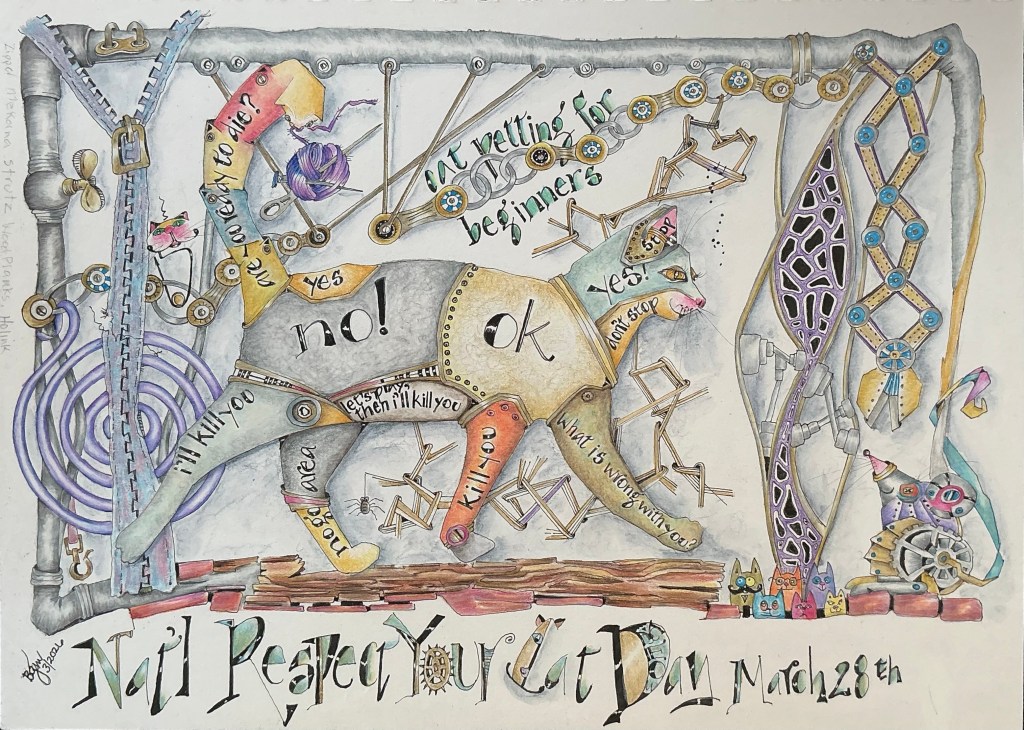 cat petting for
beginners
are u ready to die?
yes
no!
ok
stop
yes!
don't stop
i'll kill you
let's play,
then i'll kill you
no go area
kill you
what is wrong with you?
Nat'l Respect Your Cat Day March 28th